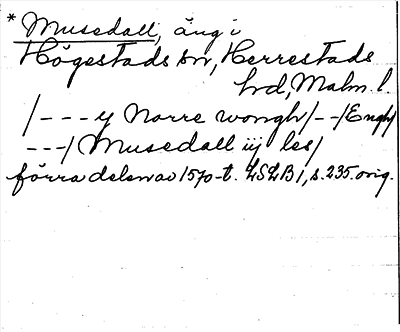 * Musedall, äng i
Högestads sn, Herrestads
hd, Malm. l.
/--- y Norre wongh/--/Engh/
---/ Musedall iij les/
förra delen av 1570-t. LSLB 1, s. 235. orig.